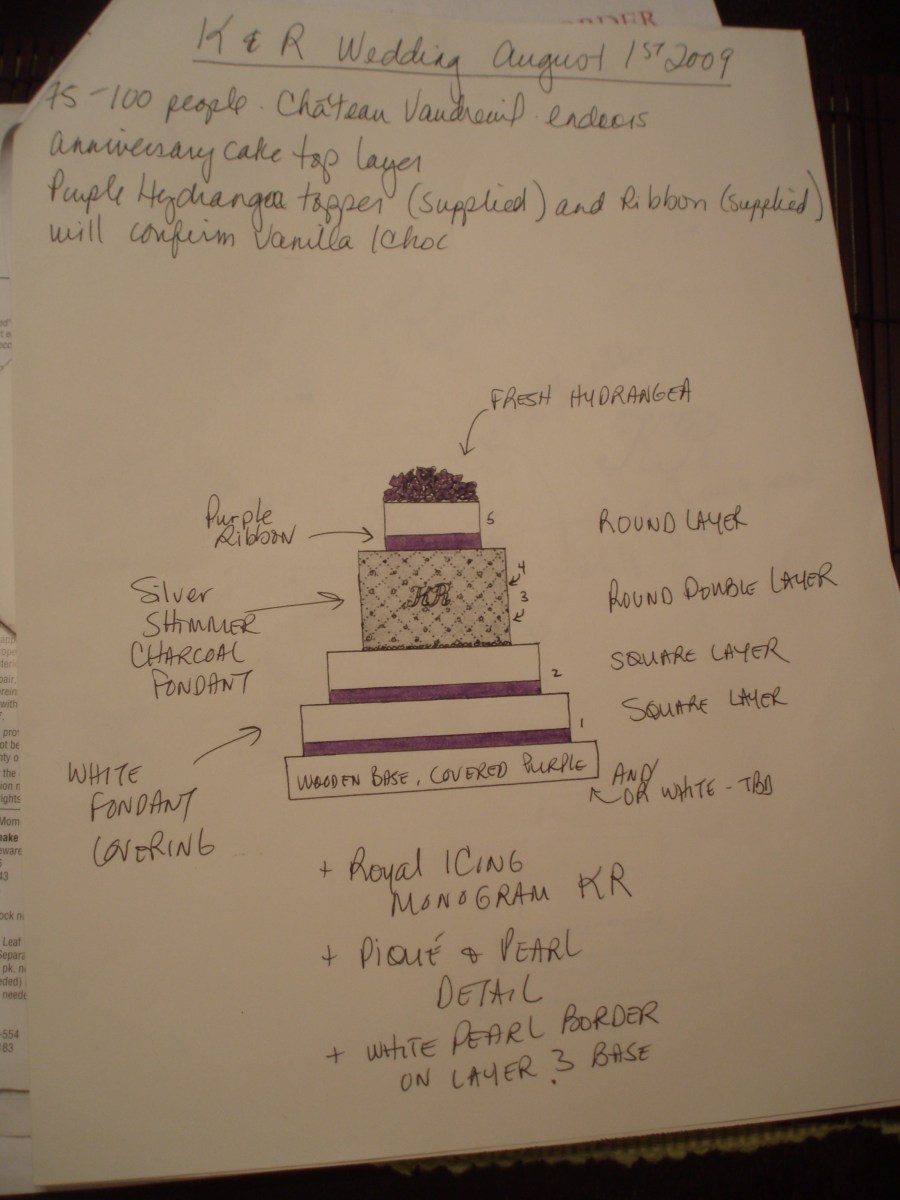 RDER
K & R Wedding August 1ST 2009
75-100 people. Château Vaudreuil. indoors
anniversary cake top layer
Purple Hydrangea topper (supplied) and Ribbon (supplied)
will confirm Vanilla / Choc
FRESH HYDRANGEA
Purple
Ribbon
5
ROUND LAYER
Silver
SHIMMER
CHARCOAL
FONDANT
KR
4
3
ROUND DOUBLE LAYER
2
SQUARE LAYER
1
SQUARE LAYER
WHITE
FONDANT
COVERING
WOODEN BASE, COVERED PURPLE
AND/
OR WHITE - TBD
+ Royal ICING
MONOGRAM KR
+ PIQUÉ & PEARL
DETAIL
+ WHITE PEARL BORDER
ON LAYER 3 BASE
with
not be
the
ights
Mom
ware
43
Leaf
pk.
needed
-554
183